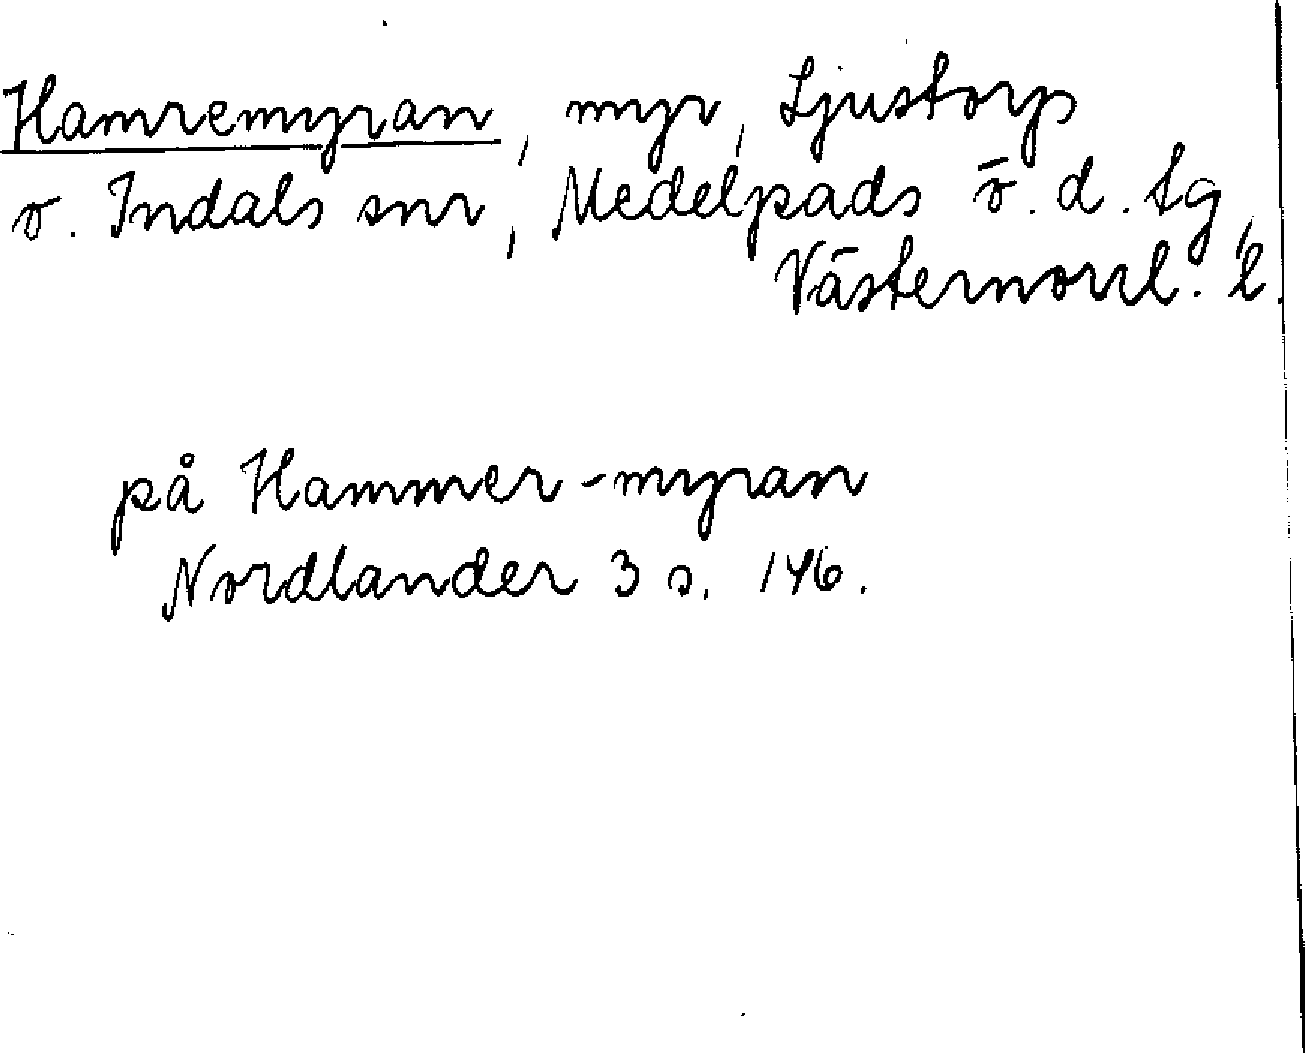 Hamremyran, myr, Ljustorp
o. Indals snr, Medelpads ö. d. tg,
Västernorrl. l.
på Hammer-myran
Nordlander 3 s. 146.